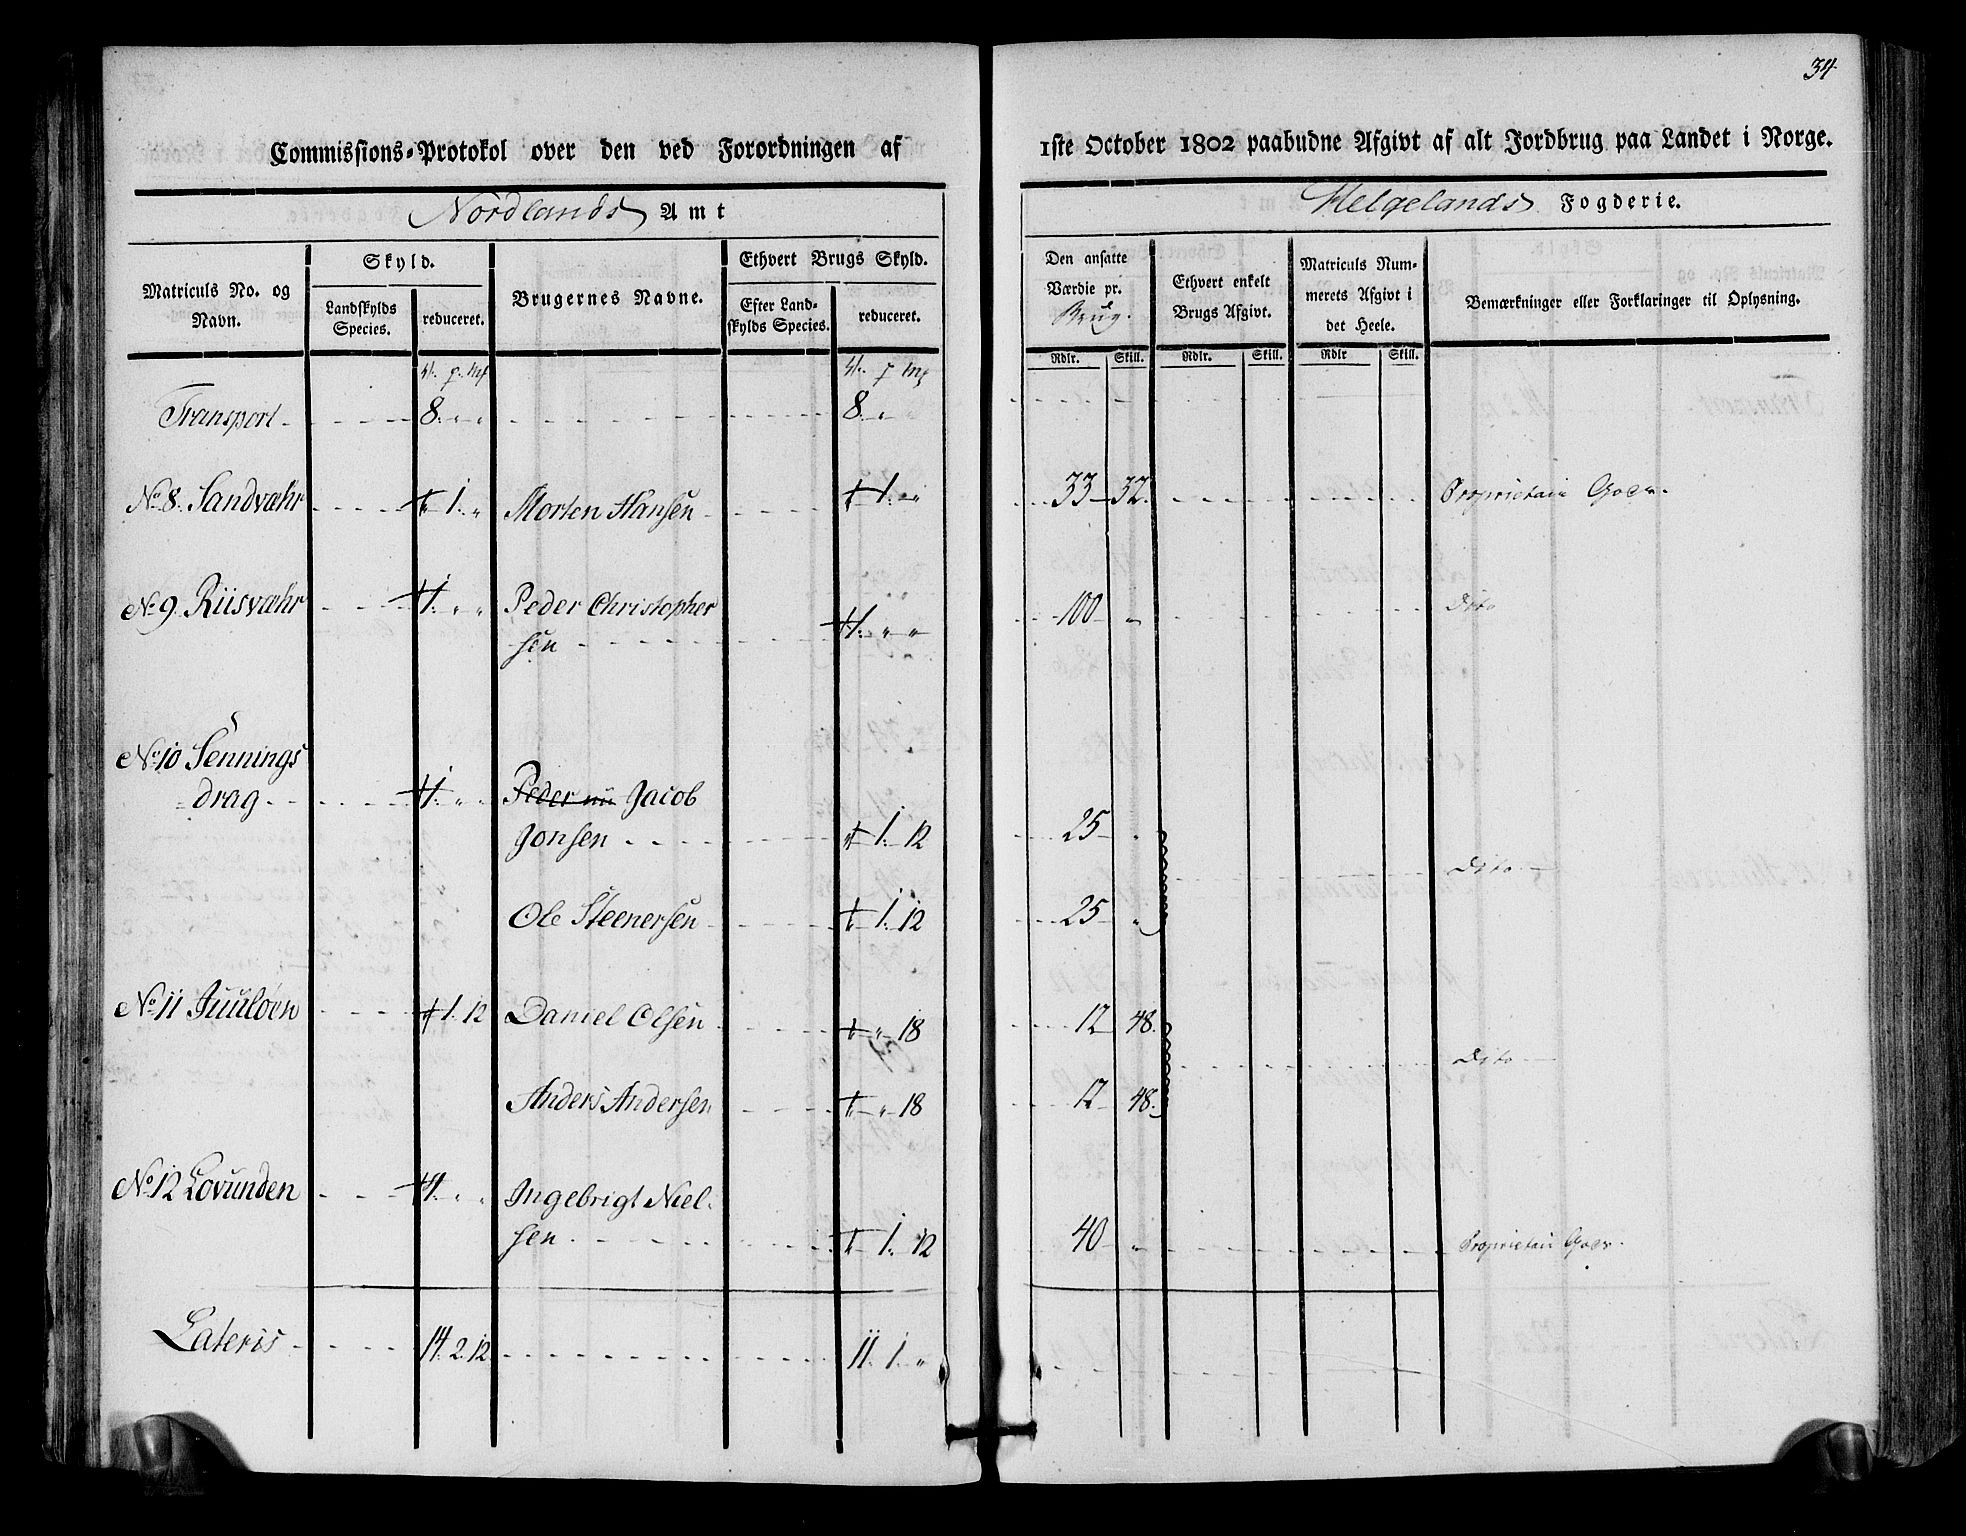 34
Commissions-Protokol over den ved Forordningen af 1ste October 1802 paabudne Afgivt af alt Jordbrug paa Landet i Norge.
Nordlands Amt Helgelands Fogderie.
Matriculs No. og Navn.
Skyld.
Landskylds Species.
reduceret.
Brugernes Navne.
Ethvert Brugs Skyld.
Efter Landskylds Species.
reduceret.
Den ansatte Værdie pr. Brug.
Rdlr. Skill.
Ethvert enkelt Brugs Afgivt.
Rdlr. Skill.
Matriculs Nummerets Afgivt i det Heele.
Rdlr Skill.
Bemærkninger eller Forklaringer til Oplysning.
Transport 8. " " 8. "
No 8. Sandvæhr 1. " Morten Hansen 1. " 33 32. Proprietair Coer.
No 9. Riisvæhr 1. " " Peder Christopher
sen 1. " " 100 " Dito
No 10 Sennings
drag 1. " " Peder nu Jacob
Jonsen 1. 12 25 "
Dito
Ole Steenersen 1. 12 25 "
No 11 Juuloen 1. 12 Daniel Olsen " 18 12 48.
Dito
Anders Andersen " 18 12 48.
No 12 Lovunden 1. " " Ingebrigt Niel
sen 1. 12 40 " Proprietair Coer.
Lateris 14. 2. 12 11. 1. "